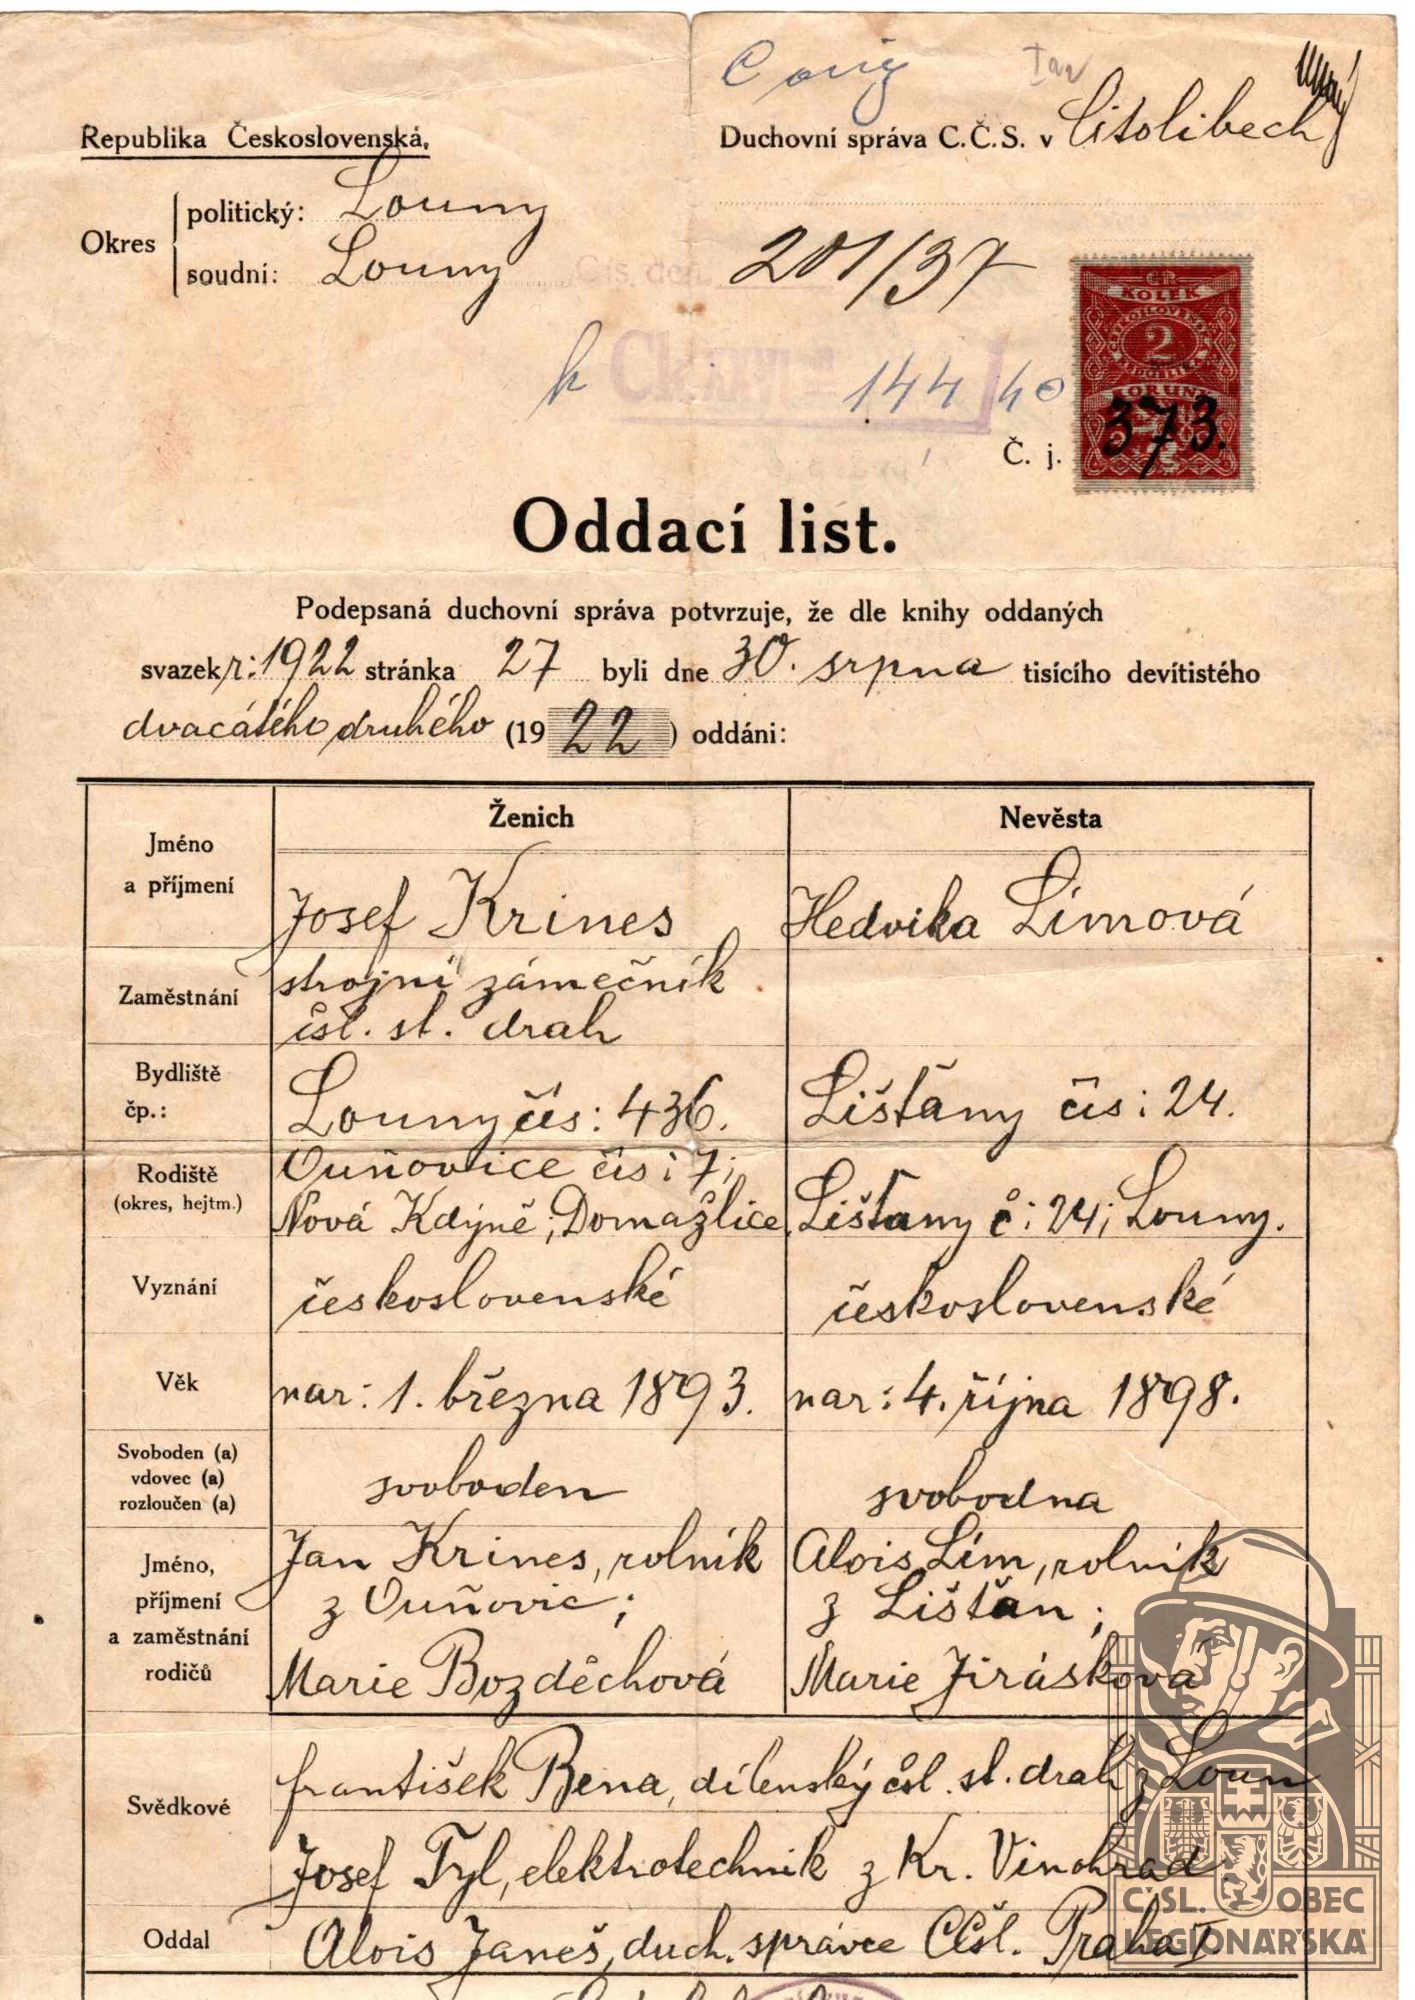 Republika Československá,
Duchovní správa C.Č.S. v Citolibech
Okres
politický: Louny
soudní: Louny
Čís. den. 201/37
k 144/40
KOLEK
2
KORUNY
373.
Č. j.
Oddací list.
Podepsaná duchovní správa potvrzuje, že dle knihy oddaných
svazek r: 1922 stránka 27 byli dne 30. srpna tisícího devítistého
dvacátého druhého (1922) oddáni:
Ženich Nevěsta
Jméno
a příjmení
Josef Krines Hedvika Límová
Zaměstnání
strojní zámečník
čsl. st. drah
Bydliště
čp.:
Louny čís: 436. Lišťany čís: 24.
Rodiště
(okres, hejtm.)
Ouňovice čís: 7;
Nová Kdýně; Domažlice, Lišťany č: 24; Louny.
Vyznání
československé československé
Věk
nar: 1. března 1893. nar: 4. října 1898.
Svoboden (a)
vdovec (a)
rozloučen (a)
svoboden svobodna
Jméno,
příjmení
a zaměstnání
rodičů
Jan Krines, rolník Alois Lím, rolník
z Ouňovic; z Lišťan;
Marie Bozděchová Marie Jirásková
Svědkové
František Bena, dílenský čsl. st. drah z Loun
Josef Tyl, elektrotechnik z Kr. Vinohrad
Oddal
Alois Janeš, duch. správce CČsl. Praha I
ČSL. OBEC
LEGIONÁŘSKÁ